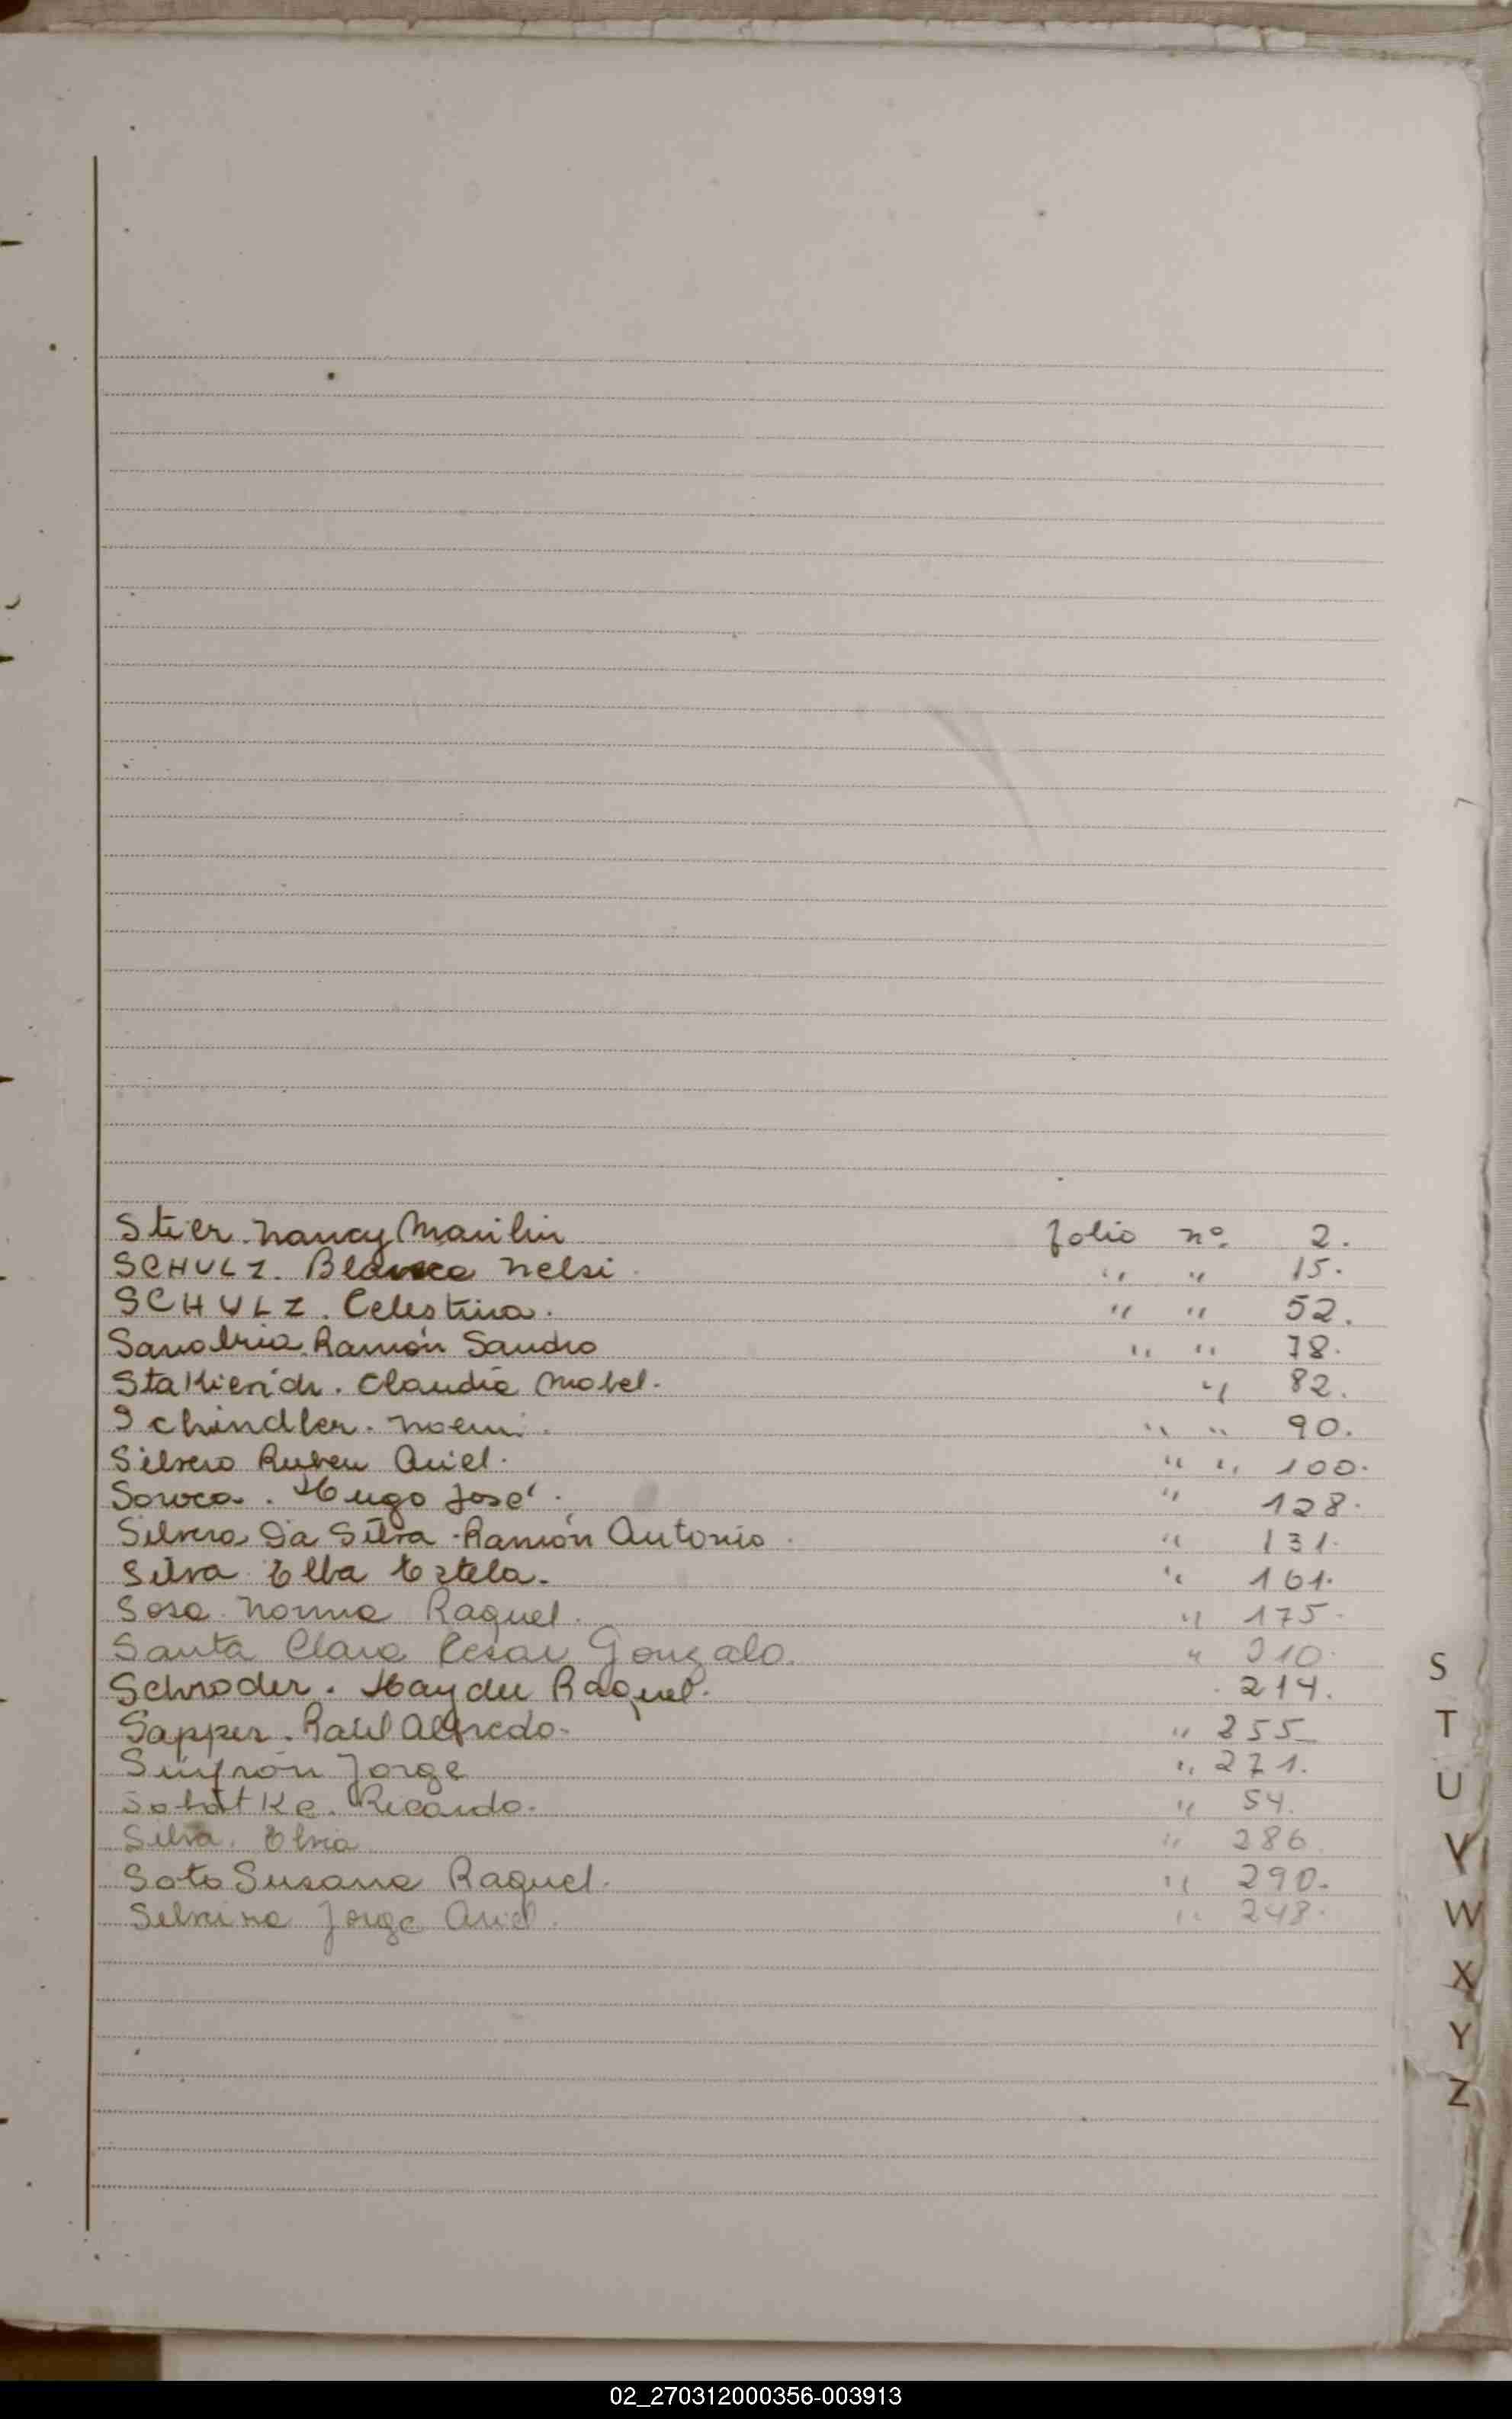 Stier Nancy Marilin folio nº 2.
SCHULZ. Blanca Nelsi " " 15.
SCHULZ. Celestina. " " 52.
Sanabria. Ramón Sandro " " 78.
Claudia Mabel. " 82.
Schindler. Noemi. " " 90.
Silvero Ruben Ariel. " " 100.
Hugo José. " 128.
Silvera Da Silva. Ramón Antonio. " 131.
Silva Elba Estela. " 161.
Sosa Norma Raquel. " 175.
Santa Clara Cesar Gonzalo. " 210.
Schroder. Haydee Raquel. 214.
Sapper. Raúl Alfredo. " 255
Jorge " 271.
Ricardo. " 54.
Silva. " 286.
Soto Susana Raquel. " 290.
Jorge Ariel. " 248.
S
T
U
V
W
X
Y
Z
02_270312000356-003913